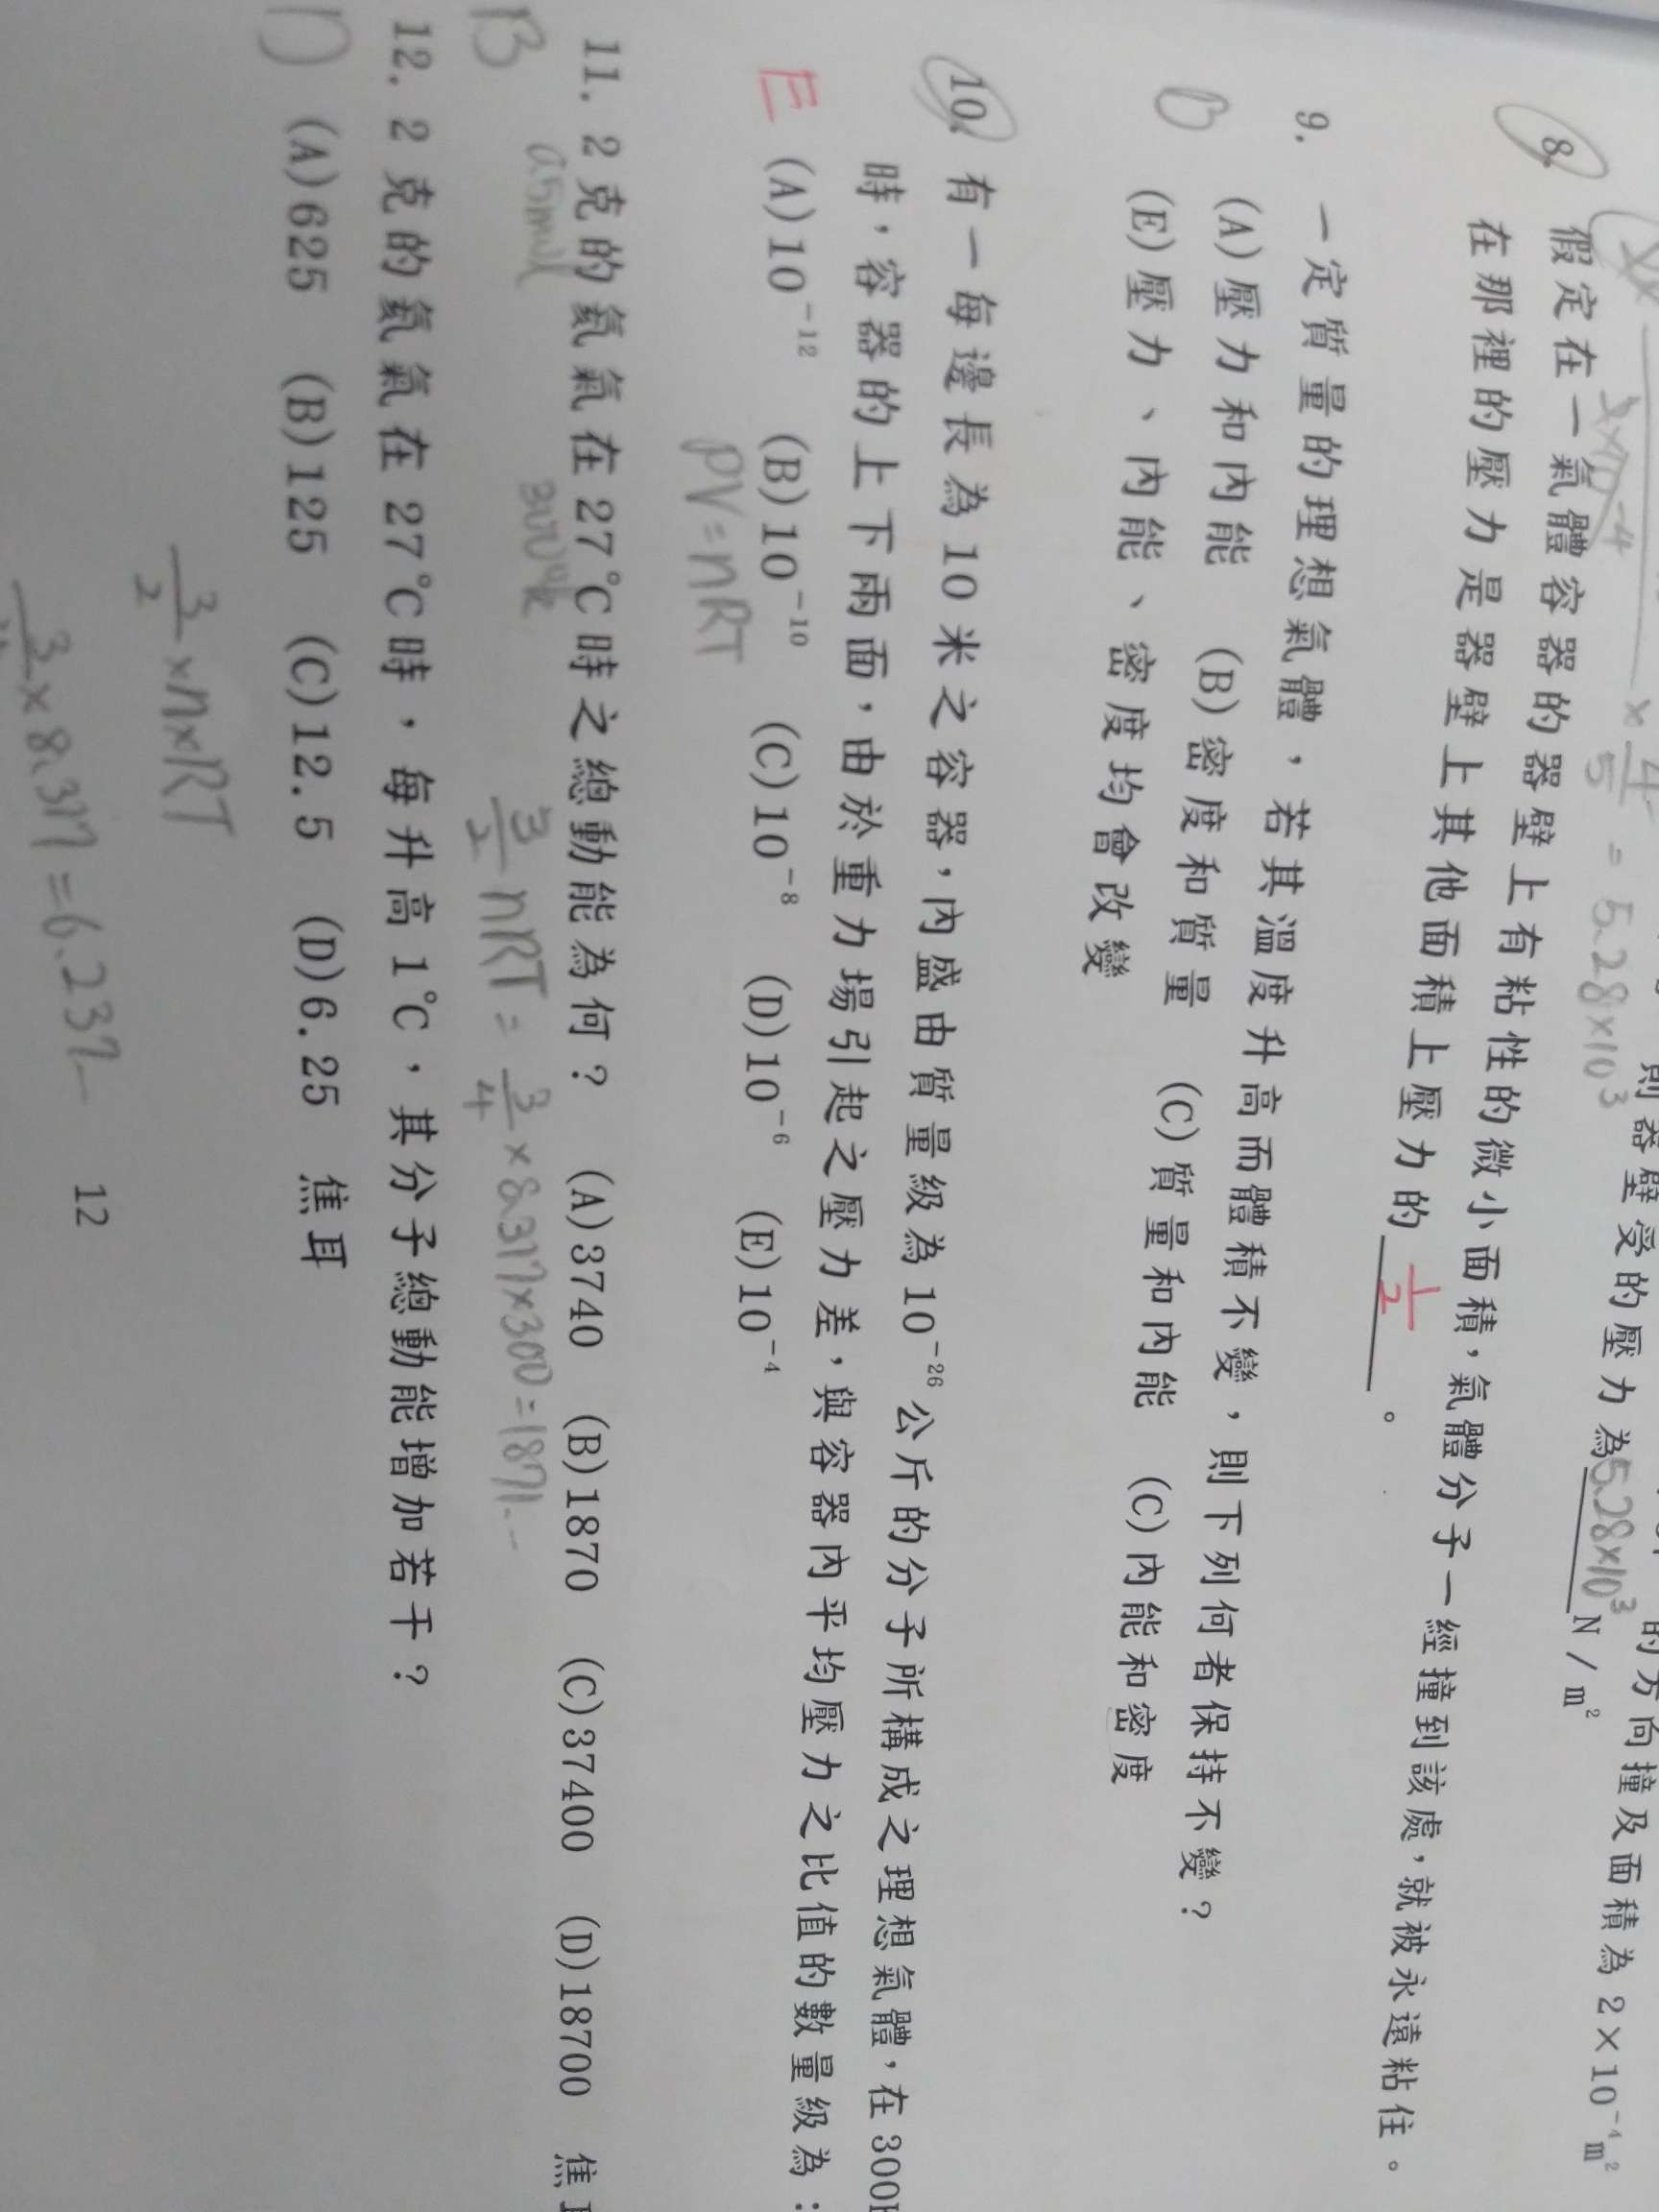 × 4/5 = 5.28×10³
則器壁受的壓力為5.28×10³ N/m²
的方向撞及面積為2×10⁻⁴m²
8. 假定在一氣體容器的器壁上有粘性的微小面積,氣體分子一經撞到該處,就被永遠粘住。
在那裡的壓力是器壁上其他面積上壓力的 1/2 。
9. 一定質量的理想氣體,若其溫度升高而體積不變,則下列何者保持不變?
B (A)壓力和內能 (B)密度和質量 (C)質量和內能 (C)內能和密度
(E)壓力、內能、密度均會改變
10. 有一每邊長為10米之容器,內盛由質量級為10⁻²⁶公斤的分子所構成之理想氣體,在300
時,容器的上下兩面,由於重力場引起之壓力差,與容器內平均壓力之比值的數量級為:
E (A)10⁻¹² (B)10⁻¹⁰ (C)10⁻⁸ (D)10⁻⁶ (E)10⁻⁴
PV=nRT
11. 2克的氦氣在27℃時之總動能為何? (A)3740 (B)1870 (C)37400 (D)18700 焦
B 0.5mol 300k 3/2 nRT = 3/4 ×8.317×300=1871.--
12. 2克的氦氣在27℃時,每升高1℃,其分子總動能增加若干?
D (A)625 (B)125 (C)12.5 (D)6.25 焦耳
3/2 ×n×RT
×8.317=6.237--
12